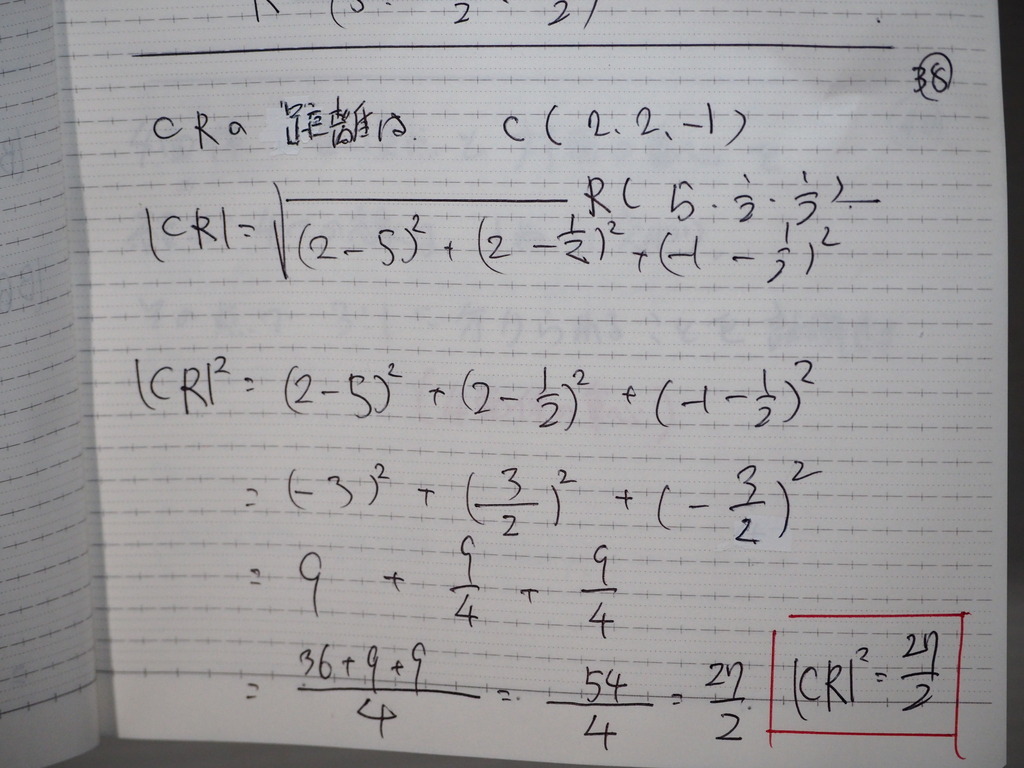 38
CRの 距離は. C(2.2.-1)
R(5.1/2.1/2)
|CR|=√(2-5)²+(2-1/2)²+(-1-1/2)²
|CR|²=(2-5)²+(2-1/2)²+(-1-1/2)²
=(-3)²+(3/2)²+(-3/2)²
=9+9/4+9/4
=36+9+9/4=54/4=27/2
|CR|²=27/2